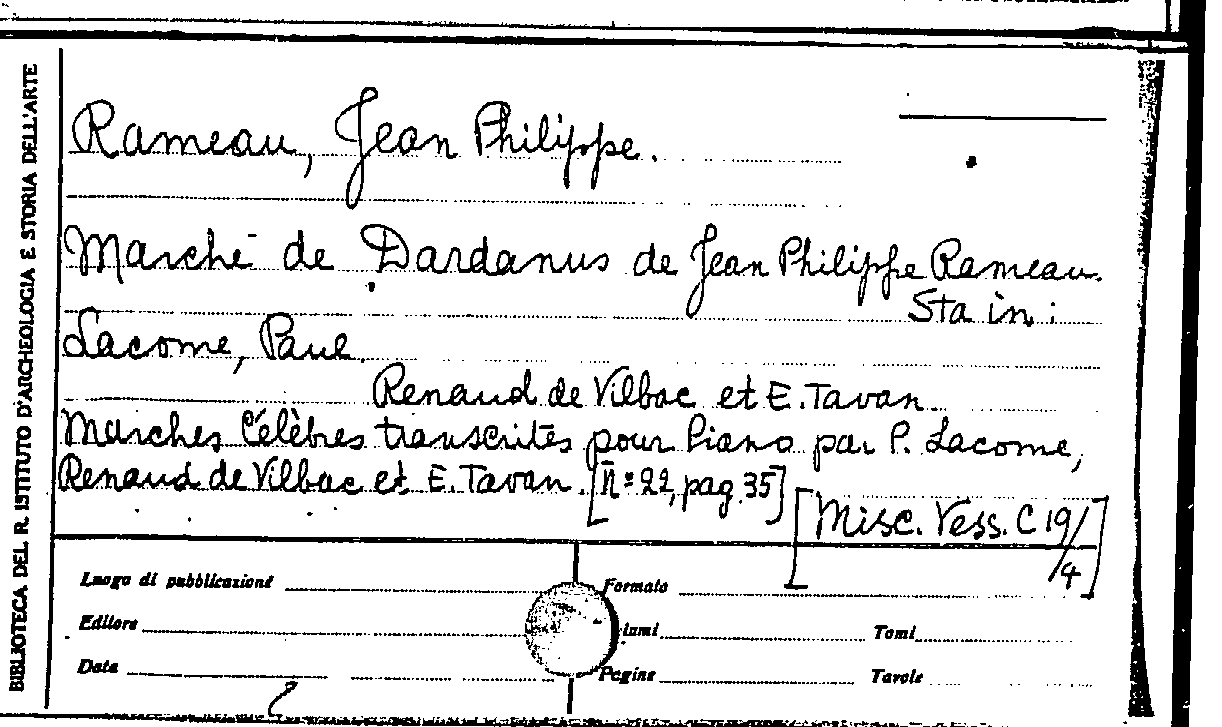 BIBLIOTECA DEL R. ISTITUTO D'ARCHEOLOGIA E STORIA DELL'ARTE
Rameau, Jean Philippe.
Marche de Dardanus de Jean Philippe Rameau.
Sta in:
Lacome, Paul.
Renaud de Vilbac et E. Tavan.
Marches Célèbres transcrites pour Piano par P. Lacome,
Renaud de Vilbac et E. Tavan. [n° 22, pag. 35]
[Misc. Vess. C 19/4]
Luogo di pubblicazione
Formato
Editore
lumi
Tomi
Data
Pagine
Tavole